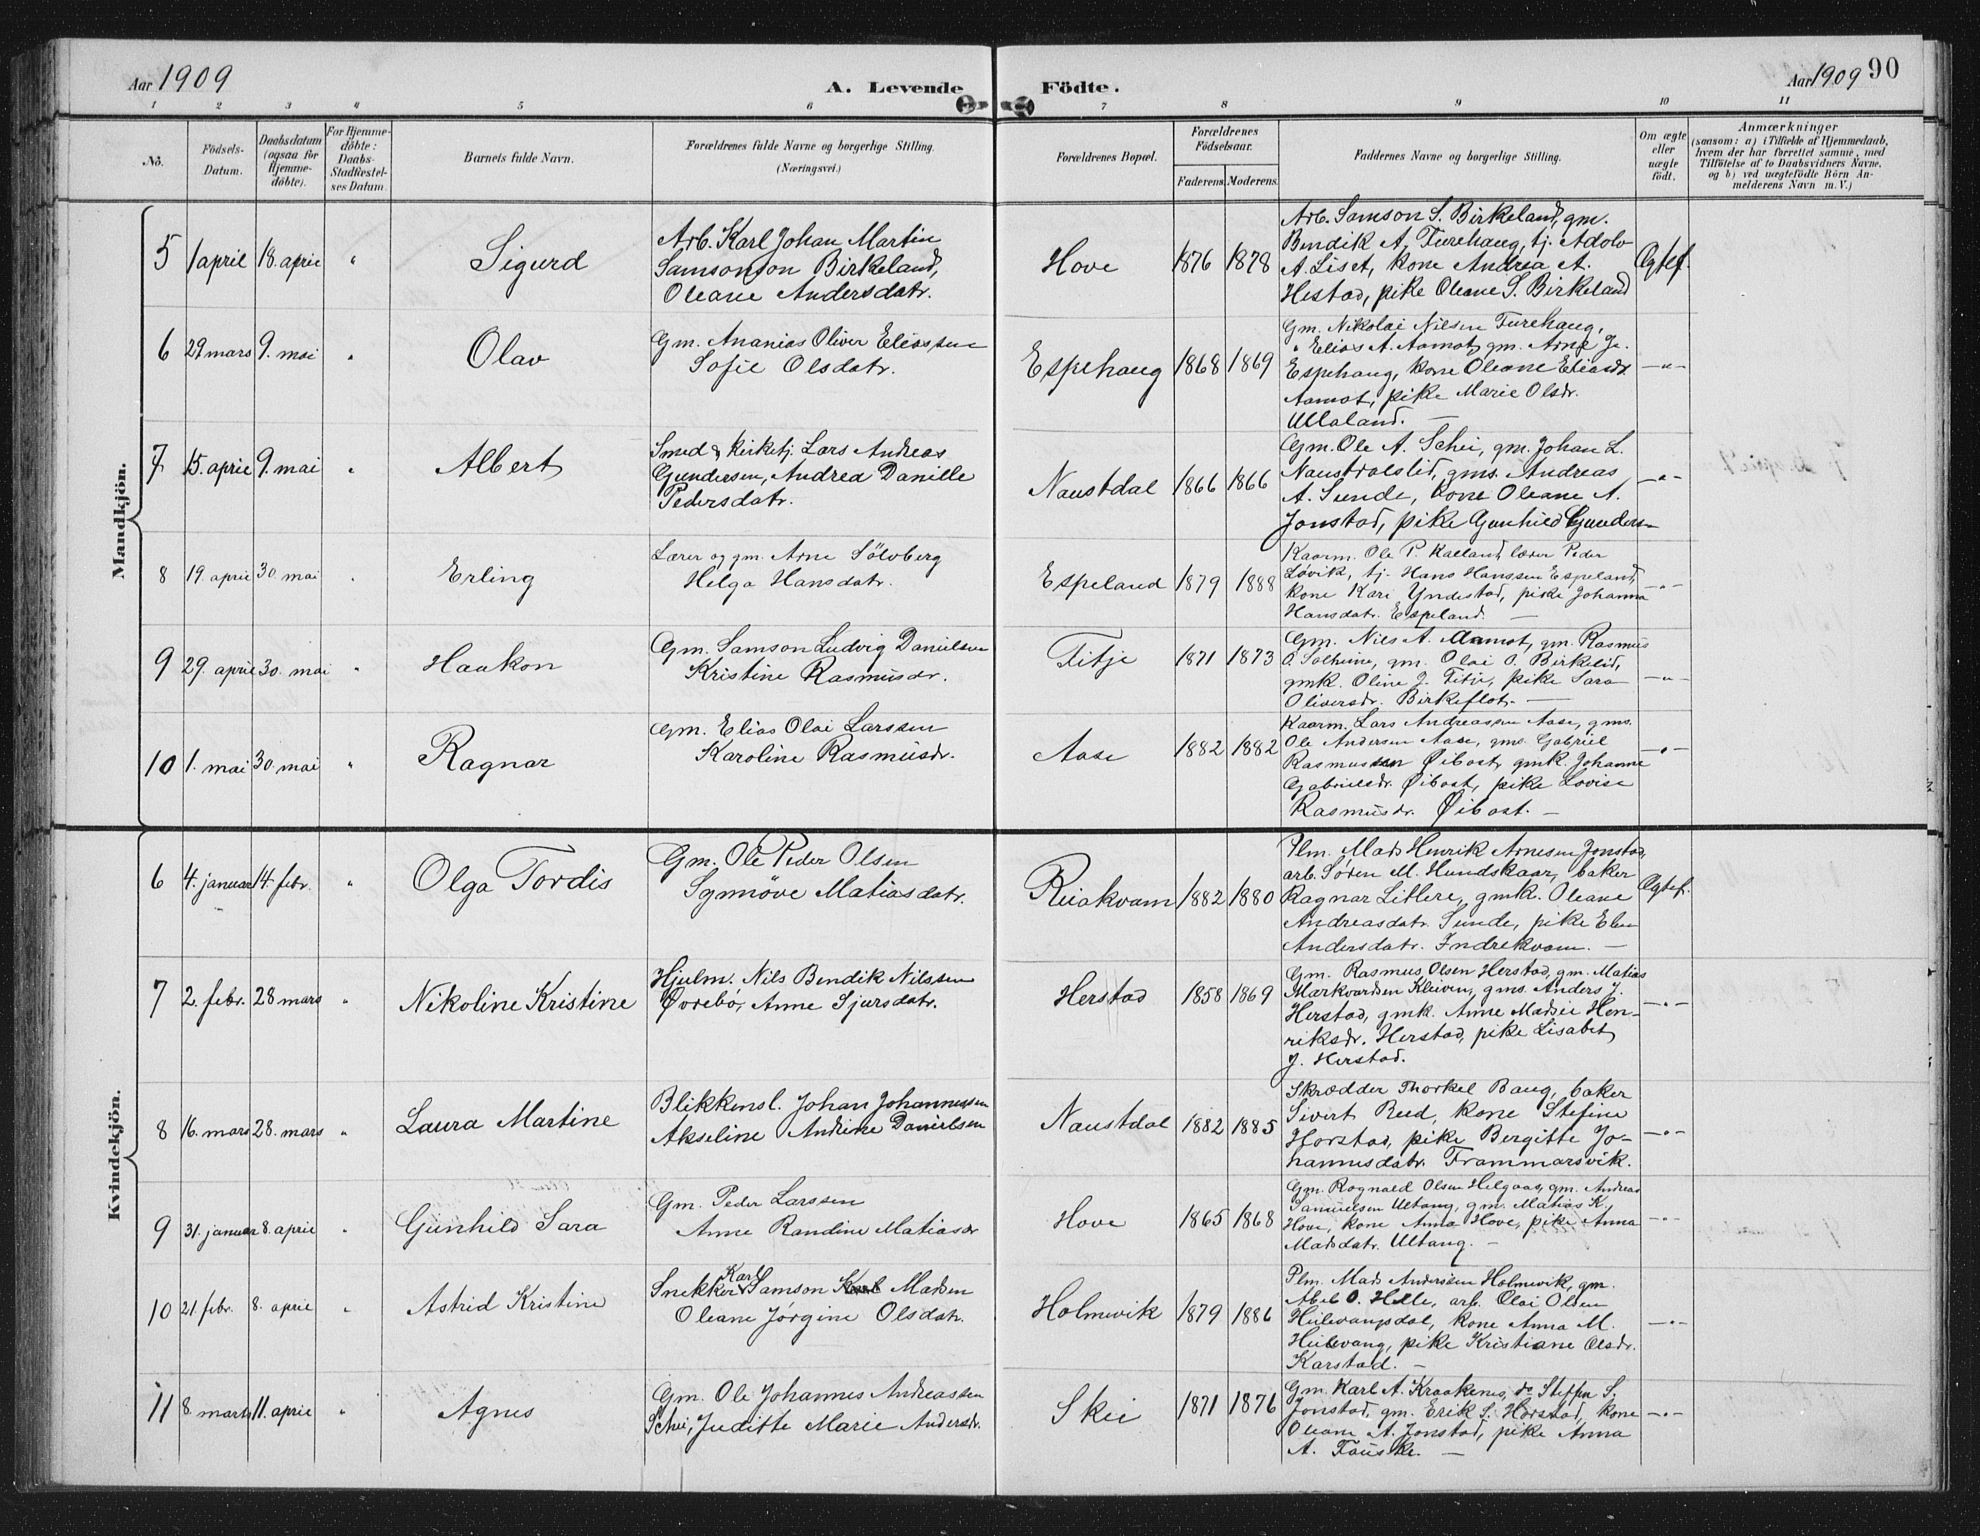 Aar 1909
A. Levende
Födte.
Aar 1909 90
1 2 3 4 5 6 7 8 9 10 11
No.
Födsels-
Datum.
Daabsdatum
(ogsaa for
Hjemme-
döbte).
For Hjemme-
döbte:
Daabs-
Stadfestel-
ses Datum.
Barnets fulde Navn.
Forældrenes fulde Navne og borgerlige Stilling.
(Næringsvei.)
Forældrenes Bopæl.
Forældrenes
Födselsaar.
Faderens. Moderens.
Faddernes Navne og borgerlige Stilling.
Om ægte
eller
uægte
födt.
Anmærkninger
(saasom: a) i Tilfælde af Hjemmedaab,
hvem der har forrettet samme, med
Tilföielse af to Daabsvidners Navne,
og b) ved uægtefödte Börn An-
melderens Navn m. V.)
Mandkjön.
5 1 april 18. april " Sigurd
Arb. Karl Johan Martin
Samsonson Birkeland,
Oleane Andersdatr.
Hove 1876 1878
Arb. Samson S. Birkeland, gm.
Bendik A. Furehaug, tj. Adolv
A. Liset, kone Andrea A.
Hestad, pike Oleane S. Birkeland
Ægtef.
6 29 mars 9. mai " Olav
Gm. Ananias Oliver Eliassen
Sofie Olsdatr.
Espehaug 1868 1869
Gm. Nikolai Nilsen Furehaug,
" Elias A. Aamot, gm. Arne J.
Espehaug, kone Oleane Eliasdr
Aamot, pike Marie Olsdr.
Ullaland. —
—"—
7 15. april 9. mai " Albert
Smed & kirketj. Lars Andreas
Gundersen, Andrea Danille
Pedersdatr.
Naustdal 1866 1866
Gm. Ole A. Schei, gm. Johan L.
Naustdalslid, gms. Andreas
A. Sunde, kone Oleane A.
Jonstad, pike Gunhild Gunders—
—"—
8 19. april 30. mai " Erling
Lærer og gm. Arne Sölvberg
Helga Hansdatr.
Espeland 1879 1888
Kaarm. Ole P. Kalland, lærer Peder
Løvik, tj. Hans Hanssen Espeland,
kone Kari Yndestad, pike Johanna
Hansdatr. Espeland. —
—"—
9 29. april 30. mai " Haakon
Gm. Samson Ludvig Danielsen
Kristine Rasmusdr.
Fitje 1871 1873
Gm. Nils A. Aamot, gm. Rasmus
O. Solheim, gm. Olai O. Birkelid,
gmk. Oline J. Fitje, pike Sara
Oliversdr. Birkeflot. —
—"—
10 1. mai 30 mai " Ragnar
Gm. Elias Olai Larssen
Karoline Rasmusdr.
Aase 1882 1882
Kaarm. Lars Andreassen Aase, gms.
Ole Andersen Aase, gms. Gabriel
Rasmussen Øibost, gmk. Johanne
Gabrielsdr. Øibost, pike Lovise
Rasmusdr. Øibost. —
—"—
Kvindekjön.
6 4. januar 14. febr. " Olga Tordis
Gm. Ole Peder Olsen
Synnöve Matiasdatr.
Reiakvam 1882 1880
Plm. Mads Henrik Arnesen Jonstad,
arb. Søren M. Hundskaar, baker
Ragnar Litlere, gmk. Oleane
Andreasdatr. Sunde, pike Elen
Andersdatr. Indrekvam. —
Ægtef.
7 2. febr. 28 mars " Nikoline Kristine
Hjulm. Nils Bendik Nilssen
Øvrebø, Anne Sjursdatr.
Herstad 1858 1869
Gm. Rasmus Olsen Herstad, gm. Matias
Markvardsen Kleiven, gms. Anders J.
Herstad, gmk. Anne Madsie Hen-
riksdr. Herstad, pike Lisabet
J. Herstad.
—"—
8 16. mars 28. mars " Laura Martine
Blikkensl. Johan Johannessen
Akseline Andrine Danielsen
Naustdal 1882 1885
Skrædder Thorkel Baug, baker
Sivert Reed, kone Stefine
Horstad, pike Bergitte Jo-
hannesdatr. Frammarsvik.
—"—
9 31. januar 8. april " Gunhild Sara
Gm. Peder Larssen
Anne Randine Matiasdr
Hove 1865 1868
Gm. Rognald Olsen Helgaas, gm. Andreas
Samuelsen Ultang, gm. Matias K.
Hove, kone Anna Hove, pike Anna
Madsdatr. Ultang. —
—"—
10 21 febr. 8. april " Astrid Kristine
Snekker Karl Samson Karl Madsen
Oleane Jørgine Olsdatr.
Holmevik 1879 1886
Plm. Mads Anderssen Holmevik, gm.
Abel O. Helle, arb. Olai Olsen
Heilevangsdal, kone Anna M.
Heilevang, pike Kristiane Olsdr.
Karstad. —
—"—
11 8. marts 11. april " Agnes
Gm. Ole Johannes Andreassen
Schei, Juditte Marie Andersdr.
Skei 1871 1876
Gm. Karl A. Kraakenes, do Steffen S.
Jonstad, gm. Erik S. Horstad, kone
Oleane A. Jonstad, pike Anna
A. Fauske. —
—"—